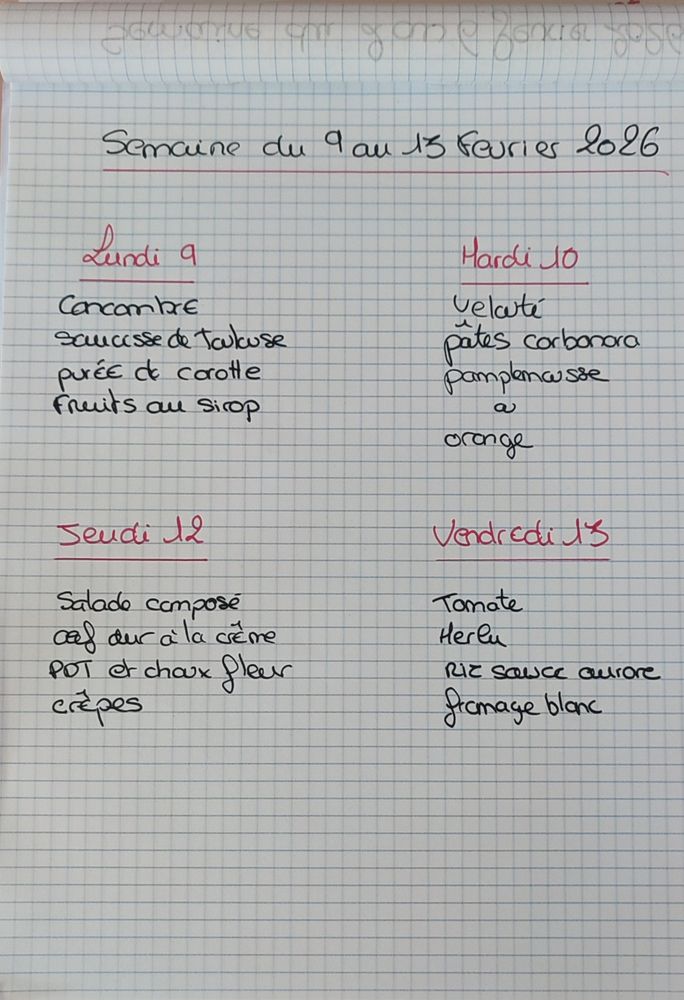 Semaine du 9 au 13 Fevrier 2026
Lundi 9
Concombre
saucisse de Toulouse
purée de carotte
Fruits au sirop
Mardi 10
Velouté
pâtes carbonara
pamplemousse
a
orange
Jeudi 12
Salade composé
œuf dur à la crème
PDT et choux fleur
crêpes
Vendredi 13
Tomate
Herlu
Riz sauce aurore
fromage blanc